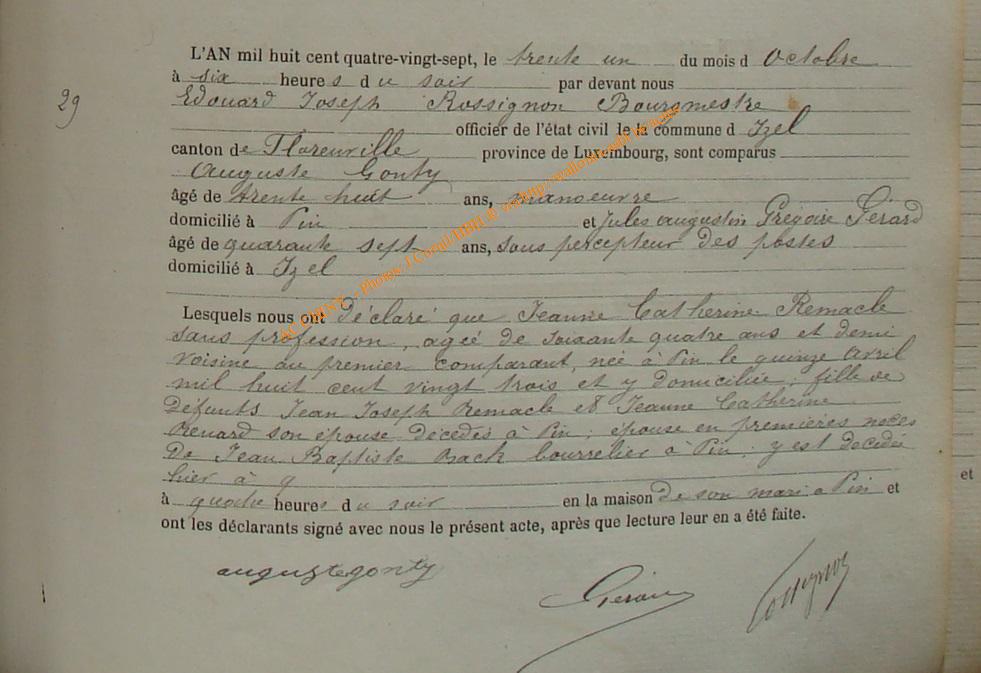 L'AN mil huit cent quatre-vingt-sept, le trente un du mois d Octobre
à six heures du soir par devant nous
29
Edouard Joseph Rossignon Bourgmestre
officier de l'état civil le la commune d Izel
canton de Florenville province de Luxembourg, sont comparus
Auguste Gonty
âgé de trente huit ans, manoeuvre
domicilié à Pin et Jules augustin Grégoire Gérard
âgé de quarante sept ans, sous percepteur des postes
domicilié à Izel
Lesquels nous ont déclaré que Jeanne Catherine Remacle
sans profession, agée de soixante quatre ans et demi
voisine au premier comparant, née à Pin le quinze Avril
mil huit cent vingt trois et y domiciliée ; fille de
défunts Jean Joseph Remacle et Jeanne Catherine
Renard son épouse décédés à Pin ; épouse en premières noces
de Jean Baptiste Bach bourrelier à Pin ; y est décédée
hier à q
et
à quatre heures du soir en la maison de son mari a Pin et
ont les déclarants signé avec nous le présent acte, après que lecture leur en a été faite.
auguste gonty
Gérard
Rossignon